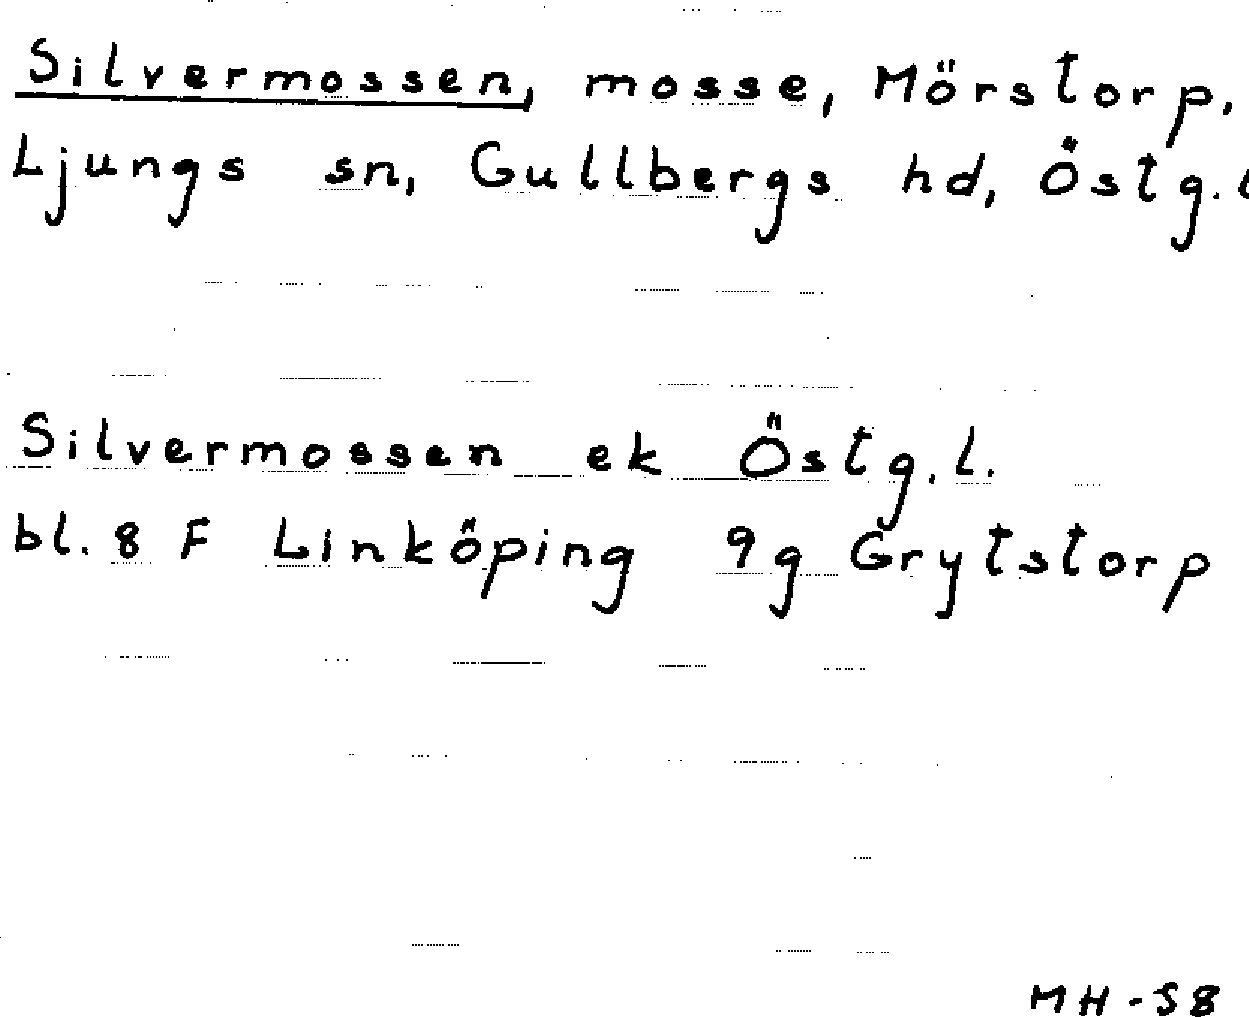 Silvermossen, mosse, Mörstorp.
Ljungs sn, Gullbergs hd, Östg.l
Silvermossen ek Östg.l.
bl. 8 F Linköping 9g Grytstorp
MH-58